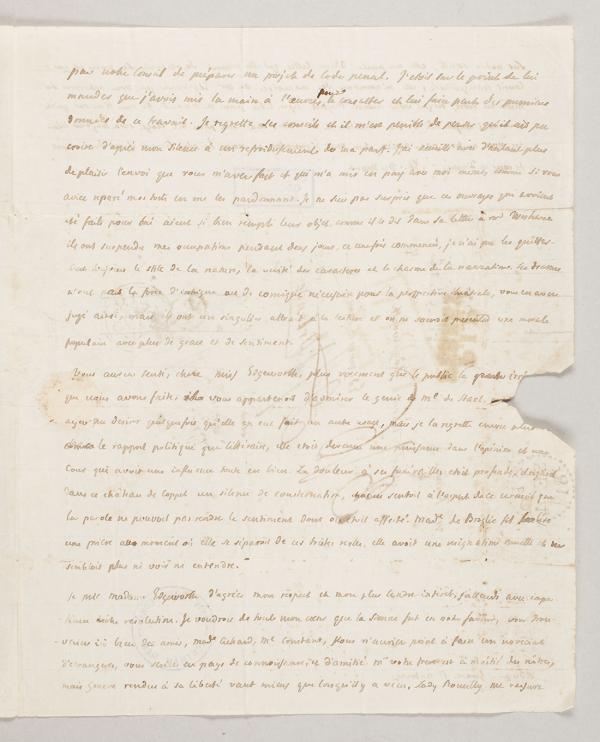 pour notre Conseil de préparer un projet de Code penal. J'etois sur le point de lui
mander que j'avois mis la main à l'oeuvre, pour le consulter et lui faire part des premieres
données de ce travail. Je regrette ses conseils et il m'est penible de penser qu'il ait pu
croire d'après mon silence à un refroidissement de ma part. J'ai accueilli avec d'autant plus
de plaisir l'envoi que vous m'avez fait et qui m'a mis en paix avec moi même, comme si vous
aviez reparé mes torts en me les pardonnant. Je ne suis pas suspris que ces ouvrages qui avoient
été faits pour lui aient si bien rempli leur objet comme il le dit dans sa lettre à
ils ont suspendu mes occupations pendant deux jours, ce une fois commencés, je n'ai pu les quitter.
c'est toujours le stile de la nature, la verité des caracteres et le charme de la narration. les drames
n'ont pas la force d'intrigue ou de comique nécessaire pour la perspective théatrale, vous en avez
jugé ainsi, mais ils ont un singulier attrait à la lecture et on ne sauroit présenter une morale
populaire avec plus de grace et de sentiment.
Vous aurez senti, chere Miss Edgeworth, plus vivement que le public la perte
que nous avons faite, vous appartenoit d'admirer le genie de Me. de Stael.
ayez pu desirer quelquefois qu'elle en eut fait un autre usage, mais je la regrette encore plus
le rapport politique que littéraire, elle etoit devenue une puissance dans l'opinion et une
qui avoit une influence toute en bien. La douleur à ses funérailles etoit profonde, il regnoit
dans ce château de Coppet un silence de consternation, chacun sentoit à l'aspect de ce cercueil que
la parole ne pouvoit pas rendre le sentiment dont on etoit affecté. Made. de Broglie fit
une priere au moment où elle se separoit de ces tristes restes, elle avoit une resignation muette et ne
sembloit plus ni voir ni entendre.
Je prie madame Edgeworth d'agréer mon respect et mon plus tendre interêt, j'attends avec impa
tience votre resolution. Je voudrois de tout mon coeur que la Suisse fut en votre faveur, vous trou
veriez ici bien des amis, made. Achard, Me. Constant, vous n'auriez point à faire un noviciat
d'étrangers, vous seriez en pays de connoissance et d'amitié
mais Geneve rendue à sa liberté vaut mieux que lorsqu'il y a vecu. Lady Romilly me rassure